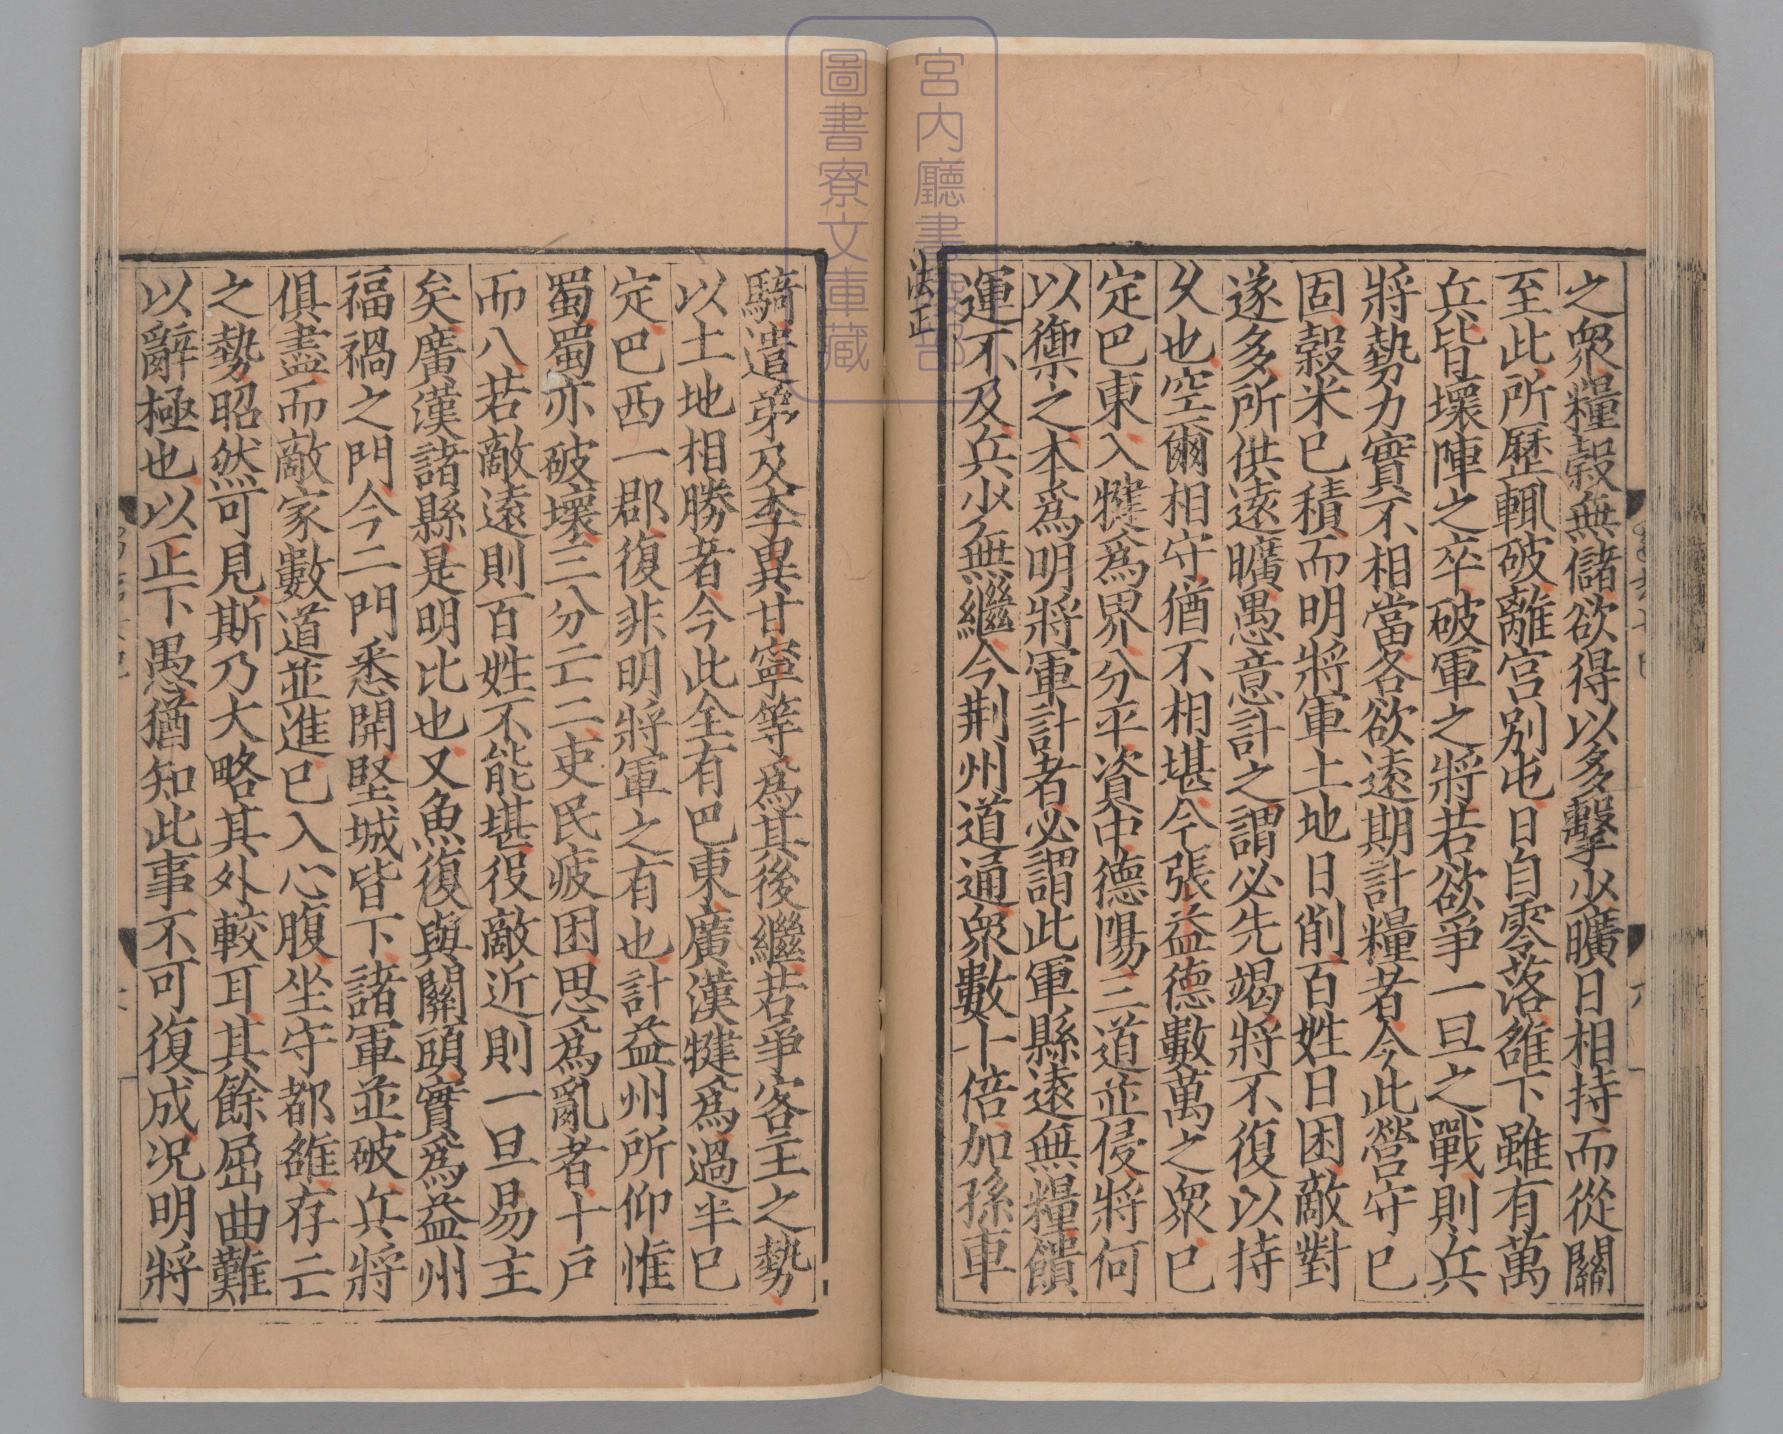 之衆糧穀無儲欲得以多擊少曠日相持而從關
至此所歷輒破離宮別屯日自零落雒下雖有萬
兵皆壞陣之卒破軍之將若欲爭一旦之戰則兵
將勢力實不相當各欲遠期計糧者今此營守已
固穀米已積而明將軍土地日削百姓日困敵對
遂多所供遠曠愚意計之謂必先竭將不復以持
久也空爾相守猶不相堪今張益德數萬之衆已
定巴東入犍爲界分平資中德陽三道並侵將何
以禦之本爲明將軍計者必謂此軍縣遠無糧饋
運不及兵少無繼今荆州道通衆數十倍加孫車
法正
騎遣弟及李異甘寧等爲其後繼若爭客主之勢
以土地相勝者今此全有巴東廣漢犍爲過半已
定巴西一郡復非明將軍之有也計益州所仰惟
蜀蜀亦破壞三分亡二吏民疲困思爲亂者十户
而八若敵遠則百姓不能堪役敵近則一旦易主
矣廣漢諸縣是明比也又魚復與關頭實爲益州
福禍之門今二門悉開堅城皆下諸軍並破兵將
俱盡而敵家數道並進已入心腹坐守都雒存亡
之勢昭然可見斯乃大略其外較耳其餘屈曲難
以辭極也以正下愚猶知此事不可復成况明將
宮内廳書陵部
圖書寮文庫藏